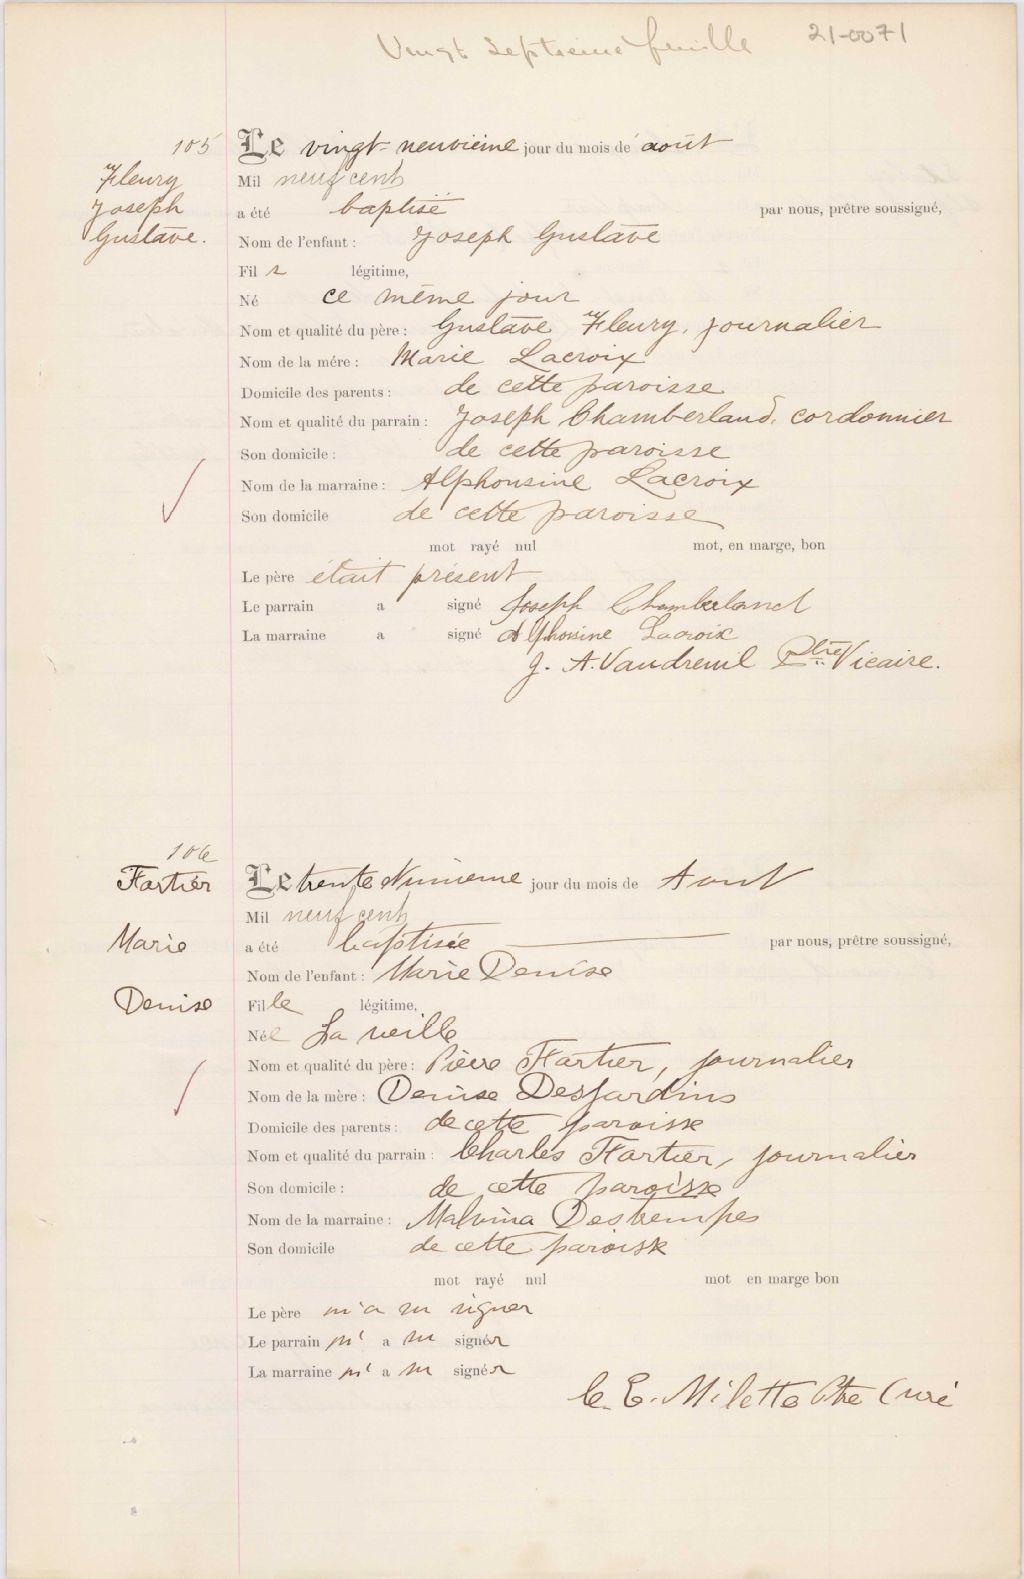 Vingt septieme feuille 21-0071
105 Le vingt-neuvième jour du mois de août
Fleury Mil neuf cent
Joseph a été baptisé par nous, prêtre soussigné,
Gustave. Nom de l'enfant : Joseph Gustave
Fil s légitime,
Né ce même jour
Nom et qualité du père : Gustave Fleury, journalier
Nom de la mére : Marie Lacroix
Domicile des parents : de cette paroisse
Nom et qualité du parrain : Joseph Chamberland, cordonnier
Son domicile : de cette paroisse
Nom de la marraine : Alphonsine Lacroix
Son domicile de cette paroisse
mot rayé nul mot, en marge, bon
Le père était présent
Le parrain a signé Joseph Chamberland
La marraine a signé Alphonsine Lacroix
J. A. Vaudreuil Ptre Vicaire.
106
Fortier Le trente jour du mois de Aout
Mil neuf cent
Marie a été baptisée par nous, prêtre soussigné,
Nom de l'enfant : Marie Denise
Denise Fille légitime,
Née La veille
Nom et qualité du père : Pierre Fortier, journalier
Nom de la mère : Denise Desjardins
Domicile des parents : de cette paroisse
Nom et qualité du parrain : Charles Fortier, journalier
Son domicile : de cette paroisse
Nom de la marraine : Malvina Destrempes
Son domicile de cette paroisse
mot rayé nul mot en marge bon
Le père n'a su signer
Le parrain n' a su signer
La marraine n' a su signer
C. E. Milette Ptre Curé